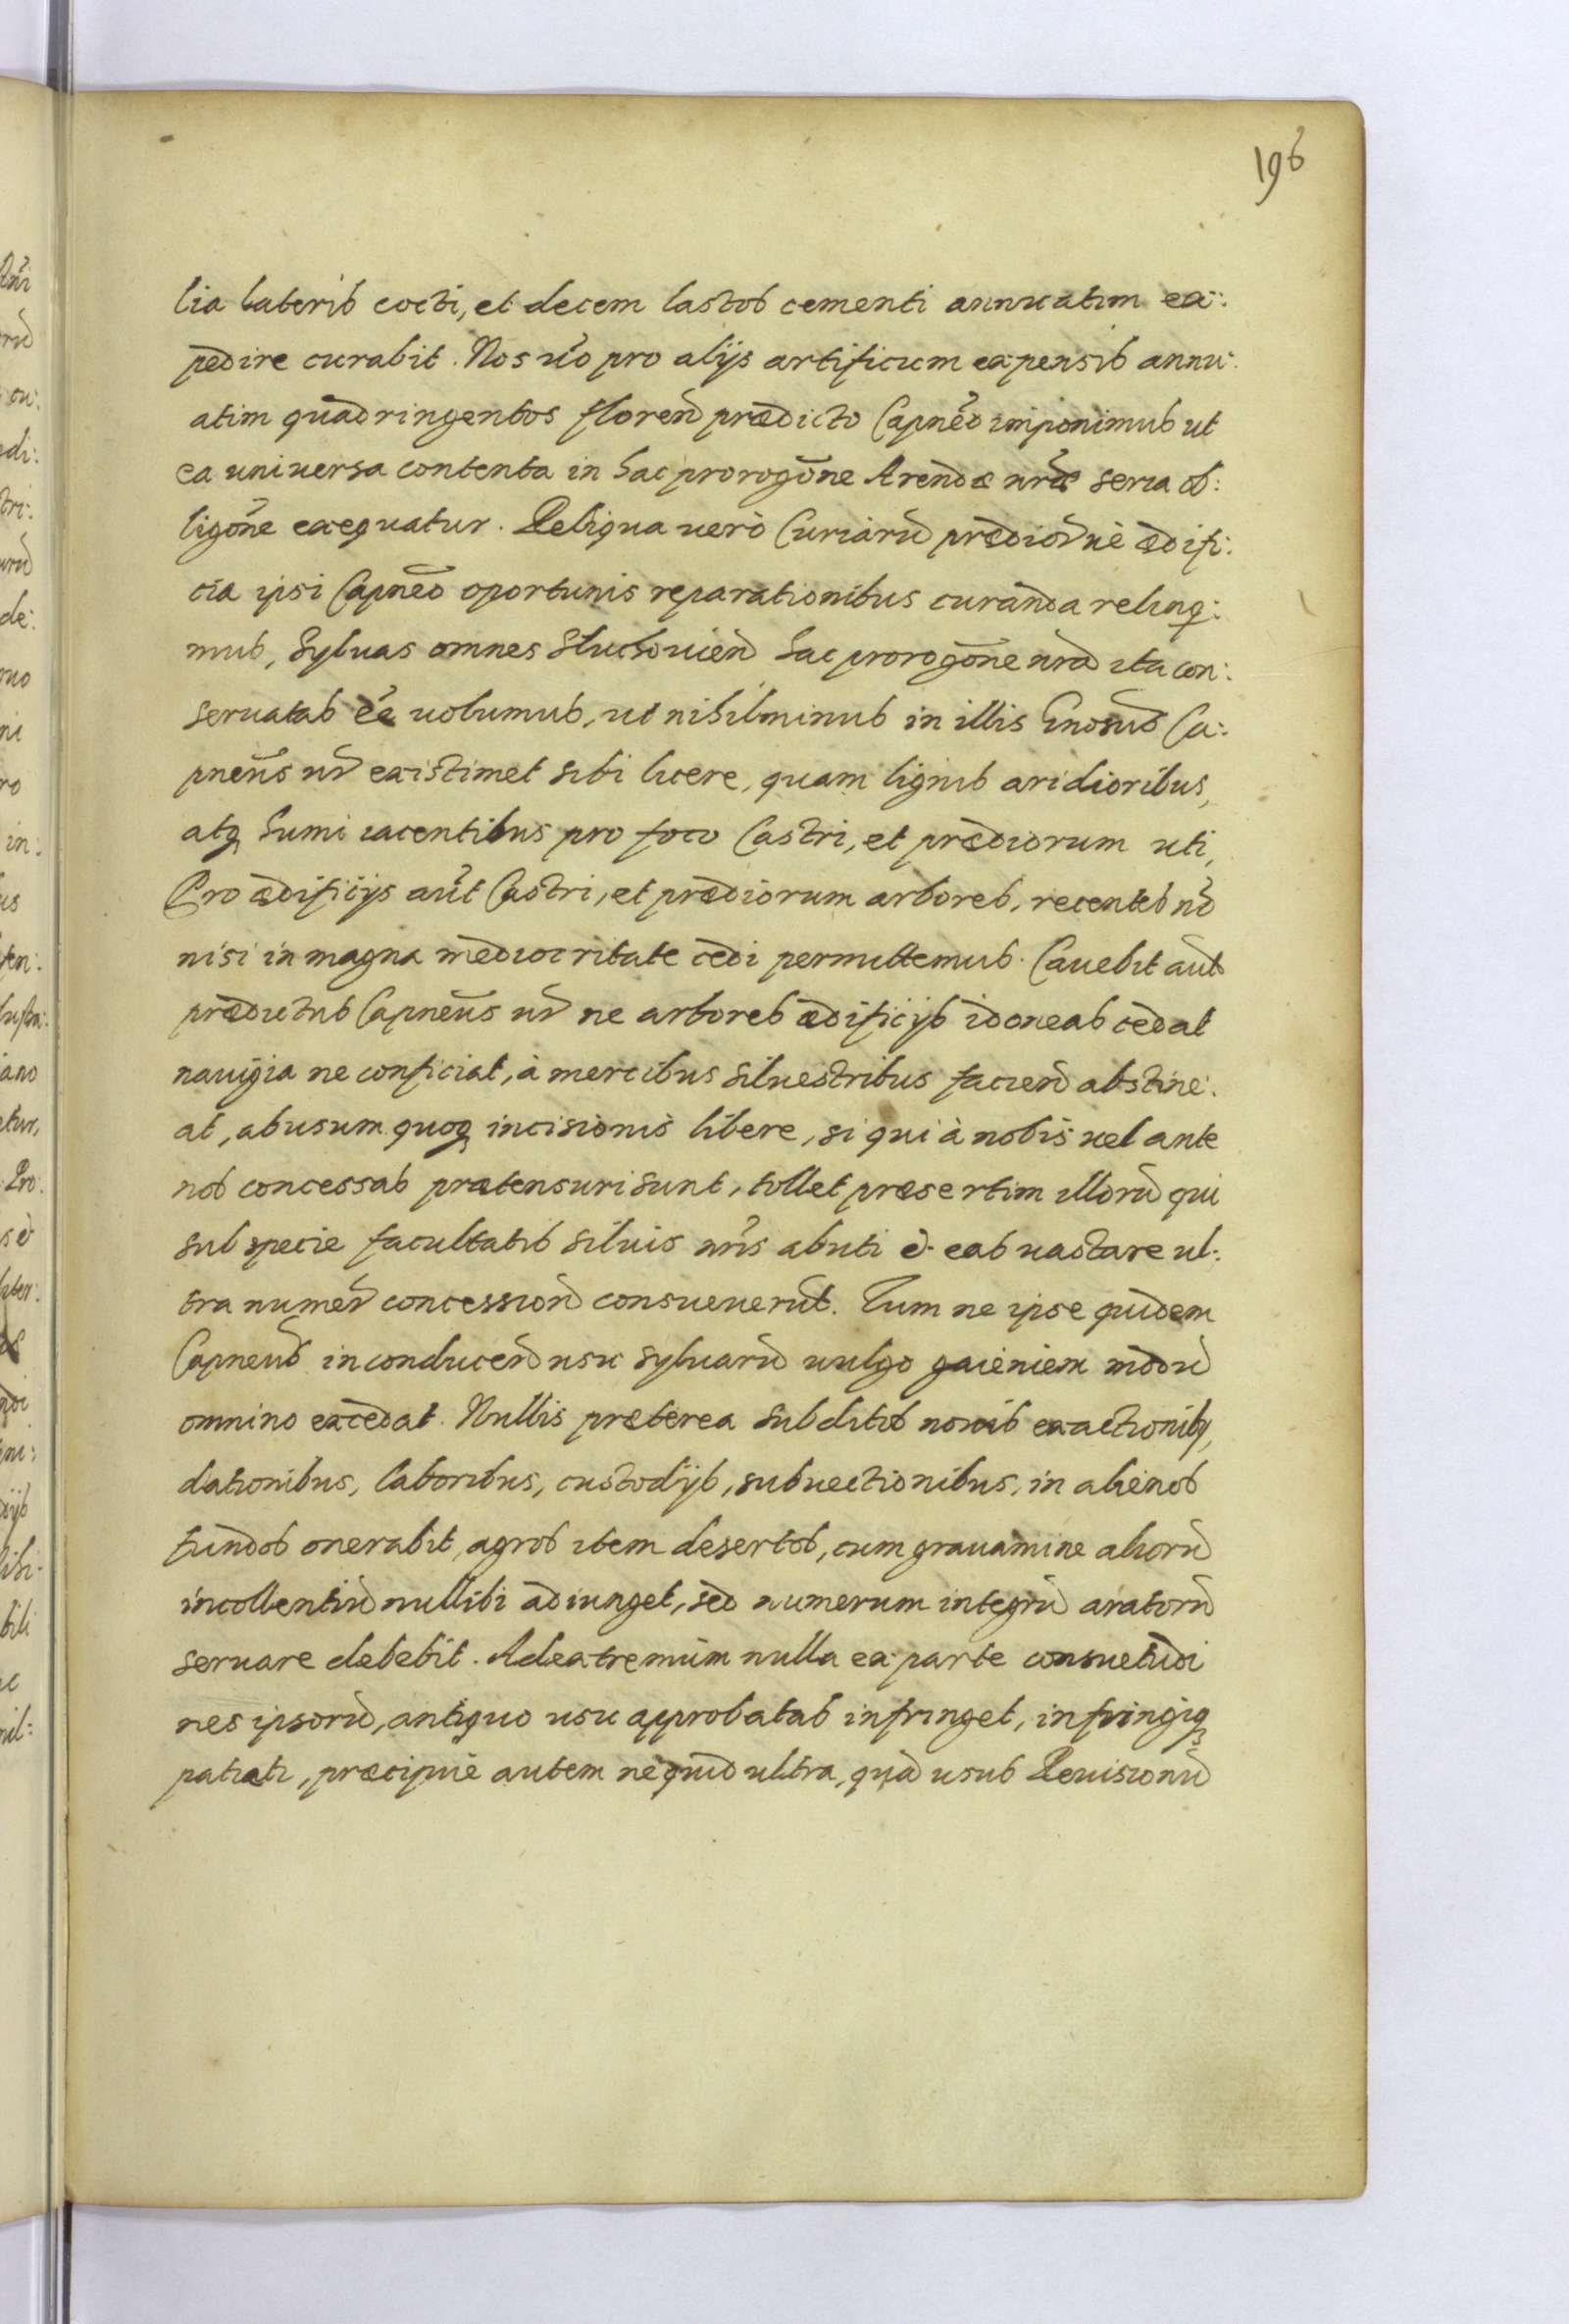 196
lia lateris cocti, et decem lastos cementi annuatim ex:
pedire curabit. Nos uo pro alijs artificum expensis annu:
atim quadringentos floren prædicto Capneo imponimus ut
ea uniuersa contenta in hac prorogõne Arendæ nræ seria ob:
ligõne exequatur. Reliqua uerò Curiarũ prædiorũ uè ædifi:
cia ipsi Capneo oportunis reparationibus curanda relinq:
mus, Syluas omnes Sluchouien hac prorogõne nra ita con:
seruatas eẽ uolumus, ut nihilminus in illis Gnosus Ca:
pneus nr existimet sibi licere, quam lignis aridioribus,
atq humi iacentibus pro foco Castri, et prædiorum uti,
Pro ædificijs aũt Castri, et prædiorum arbores, recentes nõ
nisi in magna mediocritate cedi permittemus. Cauebit aũt
prædictus Capneus nr ne arbores ædificijs idoneas cedat
nauigia ne conficiat, à mercibus siluestribus facien abstine:
at, abusum quoq incisionis libere, si qui à nobis uel ante
nos concessas prætensuri sunt, tollet præsertim illorũ qui
sub specie facultatis siluis nris abuti & eas uastare ul:
tra numerũ concession consueuerũt. Tum ne ipse quidem
Capneus in conducen usu syluarũ uulgo gaieniem modũ
omnino excedat. Nullis præterea subditos nouis exactionibq,
dationibus, laboribus, custodijs, subuectionibus, in alienos
fundos onerabit, agros item desertos, cum grauamine aliorũ
incollentiũ nullibi adiunget, sed numerum integrũ aratorũ
seruare debebit. Adextremùm nulla ex parte consuetudi
nes ipsorũ, antiquo usu approbatas infringet, infringiq
patiati, præcipuè autem nequid ultra, quã usus Reuisionũ